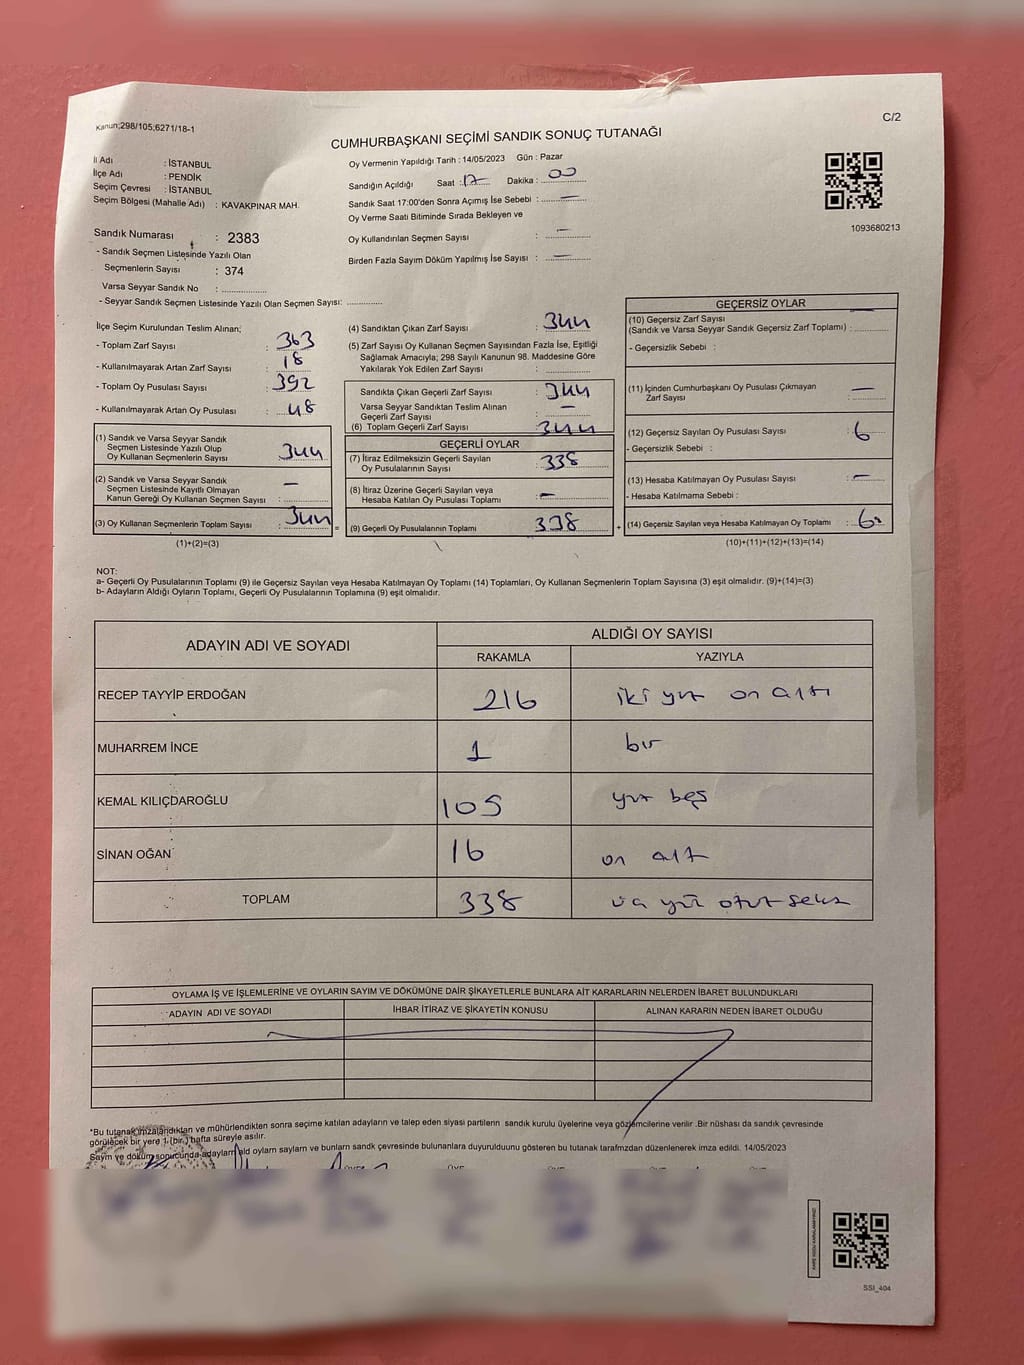 Kanun;298/105;6271/18-1
C/2
CUMHURBAŞKANI SEÇİMİ SANDIK SONUÇ TUTANAĞI
İl Adı : İSTANBUL
İlçe Adı : PENDİK
Seçim Çevresi : İSTANBUL
Seçim Bölgesi (Mahalle Adı) : KAVAKPINAR MAH.
Oy Vermenin Yapıldığı Tarih : 14/05/2023 Gün : Pazar
Sandığın Açıldığı Saat : 17 Dakika : 00
Sandık Saat 17:00'den Sonra Açımış İse Sebebi : —
Oy Verme Saati Bitiminde Sırada Bekleyen ve
Oy Kullandırılan Seçmen Sayısı : —
Birden Fazla Sayım Döküm Yapılmış İse Sayısı : —
1093680213
Sandık Numarası : 2383
- Sandık Seçmen Listesinde Yazılı Olan
Seçmenlerin Sayısı : 374
Varsa Seyyar Sandık No :
- Seyyar Sandık Seçmen Listesinde Yazılı Olan Seçmen Sayısı:
İlçe Seçim Kurulundan Teslim Alınan;
- Toplam Zarf Sayısı : 363
- Kullanılmayarak Artan Zarf Sayısı : 18
- Toplam Oy Pusulası Sayısı : 392
- Kullanılmayarak Artan Oy Pusulası : 48
(1) Sandık ve Varsa Seyyar Sandık
Seçmen Listesinde Yazılı Olup
Oy Kullanan Seçmenlerin Sayısı : 344
(2) Sandık ve Varsa Seyyar Sandık
Seçmen Listesinde Kayıtlı Olmayan
Kanun Gereği Oy Kullanan Seçmen Sayısı : —
(3) Oy Kullanan Seçmenlerin Toplam Sayısı : 344 =
(1)+(2)=(3)
(4) Sandıktan Çıkan Zarf Sayısı : 344
(5) Zarf Sayısı Oy Kullanan Seçmen Sayısından Fazla İse, Eşitliği
Sağlamak Amacıyla; 298 Sayılı Kanunun 98. Maddesine Göre
Yakılarak Yok Edilen Zarf Sayısı :
Sandıkta Çıkan Geçerli Zarf Sayısı : 344
Varsa Seyyar Sandıktan Teslim Alınan
Geçerli Zarf Sayısı : —
(6) Toplam Geçerli Zarf Sayısı : 344
GEÇERLİ OYLAR
(7) İtiraz Edilmeksizin Geçerli Sayılan
Oy Pusulalarının Sayısı : 338
(8) İtiraz Üzerine Geçerli Sayılan veya
Hesaba Katılan Oy Pusulası Toplamı : —
(9) Geçerli Oy Pusulalarının Toplamı : 338 +
GEÇERSİZ OYLAR
(10) Geçersiz Zarf Sayısı
(Sandık ve Varsa Seyyar Sandık Geçersiz Zarf Toplamı) :
- Geçersizlik Sebebi :
(11) İçinden Cumhurbaşkanı Oy Pusulası Çıkmayan
Zarf Sayısı : —
(12) Geçersiz Sayılan Oy Pusulası Sayısı : 6
- Geçersizlik Sebebi :
(13) Hesaba Katılmayan Oy Pusulası Sayısı : —
- Hesaba Katılmama Sebebi :
(14) Geçersiz Sayılan veya Hesaba Katılmayan Oy Toplamı : 6
(10)+(11)+(12)+(13)=(14)
NOT:
a- Geçerli Oy Pusulalarının Toplamı (9) ile Geçersiz Sayılan veya Hesaba Katılmayan Oy Toplamı (14) Toplamları, Oy Kullanan Seçmenlerin Toplam Sayısına (3) eşit olmalıdır. (9)+(14)=(3)
b- Adayların Aldığı Oyların Toplamı, Geçerli Oy Pusulalarının Toplamına (9) eşit olmalıdır.
ADAYIN ADI VE SOYADI
ALDIĞI OY SAYISI
RAKAMLA YAZIYLA
RECEP TAYYİP ERDOĞAN 216 iki yüz on altı
MUHARREM İNCE 1 bir
KEMAL KILIÇDAROĞLU 105 yüz beş
SİNAN OĞAN 16 on altı
TOPLAM 338 üç yüz otuz sekiz
OYLAMA İŞ VE İŞLEMLERİNE VE OYLARIN SAYIM VE DÖKÜMÜNE DAİR ŞİKAYETLERLE BUNLARA AİT KARARLARIN NELERDEN İBARET BULUNDUKLARI
ADAYIN ADI VE SOYADI İHBAR İTİRAZ VE ŞİKAYETİN KONUSU ALINAN KARARIN NEDEN İBARET OLDUĞU
*Bu tutanak imzalandıktan ve mühürlendikten sonra seçime katılan adayların ve talep eden siyasi partilerin sandık kurulu üyelerine veya gözlemcilerine verilir .Bir nüshası da sandık çevresinde
görülecek bir yere 1 (bir ) hafta süreyle asılır.
Sayım ve döküm sonucunda adayların ald oyların sayların ve bunların sandk çevresinde bulunanlara duyurulduunu gösteren bu tutanak tarafmzdan düzenlenerek imza edildi. 14/05/2023
SSI_404